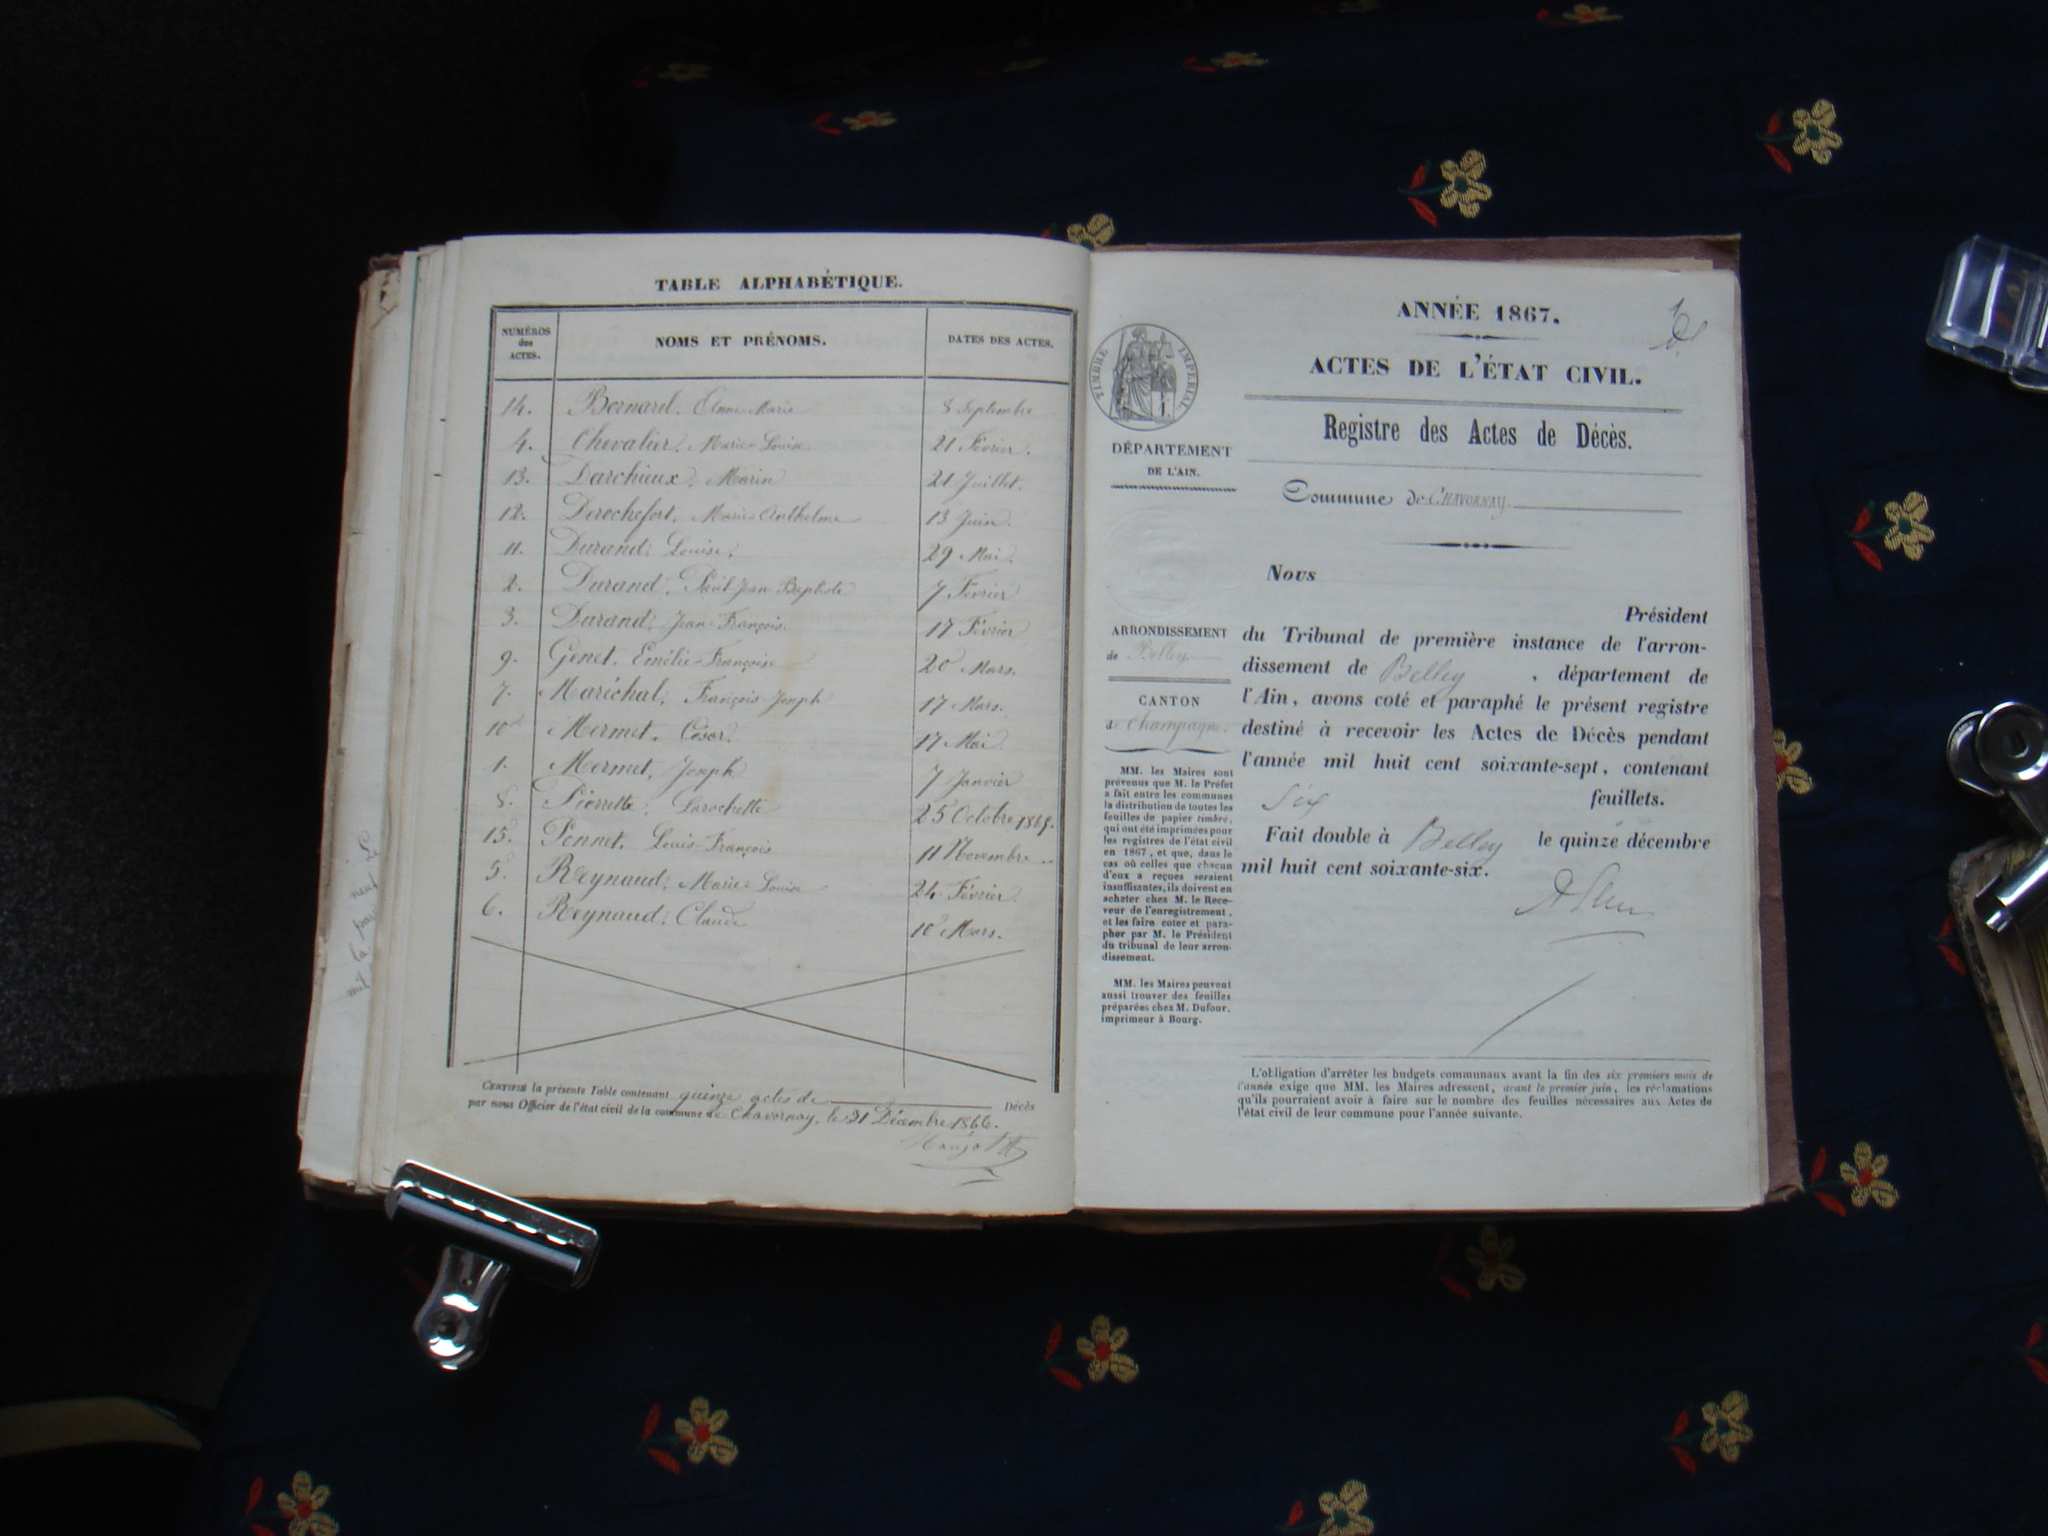 TABLE ALPHABÉTIQUE.
NUMÉROS des ACTES. NOMS ET PRÉNOMS. DATES DES ACTES.
14. Bernard. Anne-Marie 8 Septembre
4. Chevalier. Marie-Louise 21 Février.
13. Darchieux. Marin 21 Juillet.
12. Derochefort. Marie-Anthelme 13 Juin.
11. Durand. Louise. 29 Mai.
2. Durand. Jean-Baptiste 7 Février
3. Durand. Jean-François. 17 Février
9. Genet. Emélie-François 20 Mars.
7. Maréchal. François-Joseph 17 Mars.
10 Mermet. César. 17 Mai
1. Mermet. Joseph 7 Janvier
8. Pierrette. Larochette 25 Octobre
15. Pennet. Louis-François 11 Novembre
5. Reynaud. Marie-Louise 24 Février.
6. Reynaud. Claude 10 Mars.
CERTIFIÉ la présente Table contenant quinze actes de Décès
par nous Officier de l'état civil de la commune de Chavornay, le 31 Décembre 1866.
ANNÉE 1867.
ACTES DE L'ÉTAT CIVIL.
Registre des Actes de Décès.
Commune de CHAVORNAY.
TIMBRE IMPERIAL
DÉPARTEMENT
DE L'AIN.
ARRONDISSEMENT
de Belley
CANTON
de Champagne.
MM. les Maires sont
prévenus que M. le Préfet
a fait entre les communes
la distribution de toutes les
feuilles de papier timbré,
qui ont été imprimées pour
les registres de l'état civil
en 1867, et que, dans le
cas où celles que chacun
d'eux a reçues seraient
insuffisantes, ils doivent en
acheter chez M. le Rece-
veur de l'enregistrement,
et les faire coter et para-
pher par M. le Président
du tribunal de leur arron-
dissement.
MM. les Maires peuvent
aussi trouver des feuilles
préparées chez M. Dufour,
imprimeur à Bourg.
Nous
Président
du Tribunal de première instance de l'arron-
dissement de Belley , département de
l'Ain, avons coté et paraphé le présent registre
destiné à recevoir les Actes de Décès pendant
l'année mil huit cent soixante-sept, contenant
Six feuillets.
Fait double à Belley le quinze décembre
mil huit cent soixante-six.
L'obligation d'arrêter les budgets communaux avant la fin des six premiers mois de
l'année exige que MM. les Maires adressent, avant le premier juin, les réclamations
qu'ils pourraient avoir à faire sur le nombre des feuilles nécessaires aux Actes de
l'état civil de leur commune pour l'année suivante.